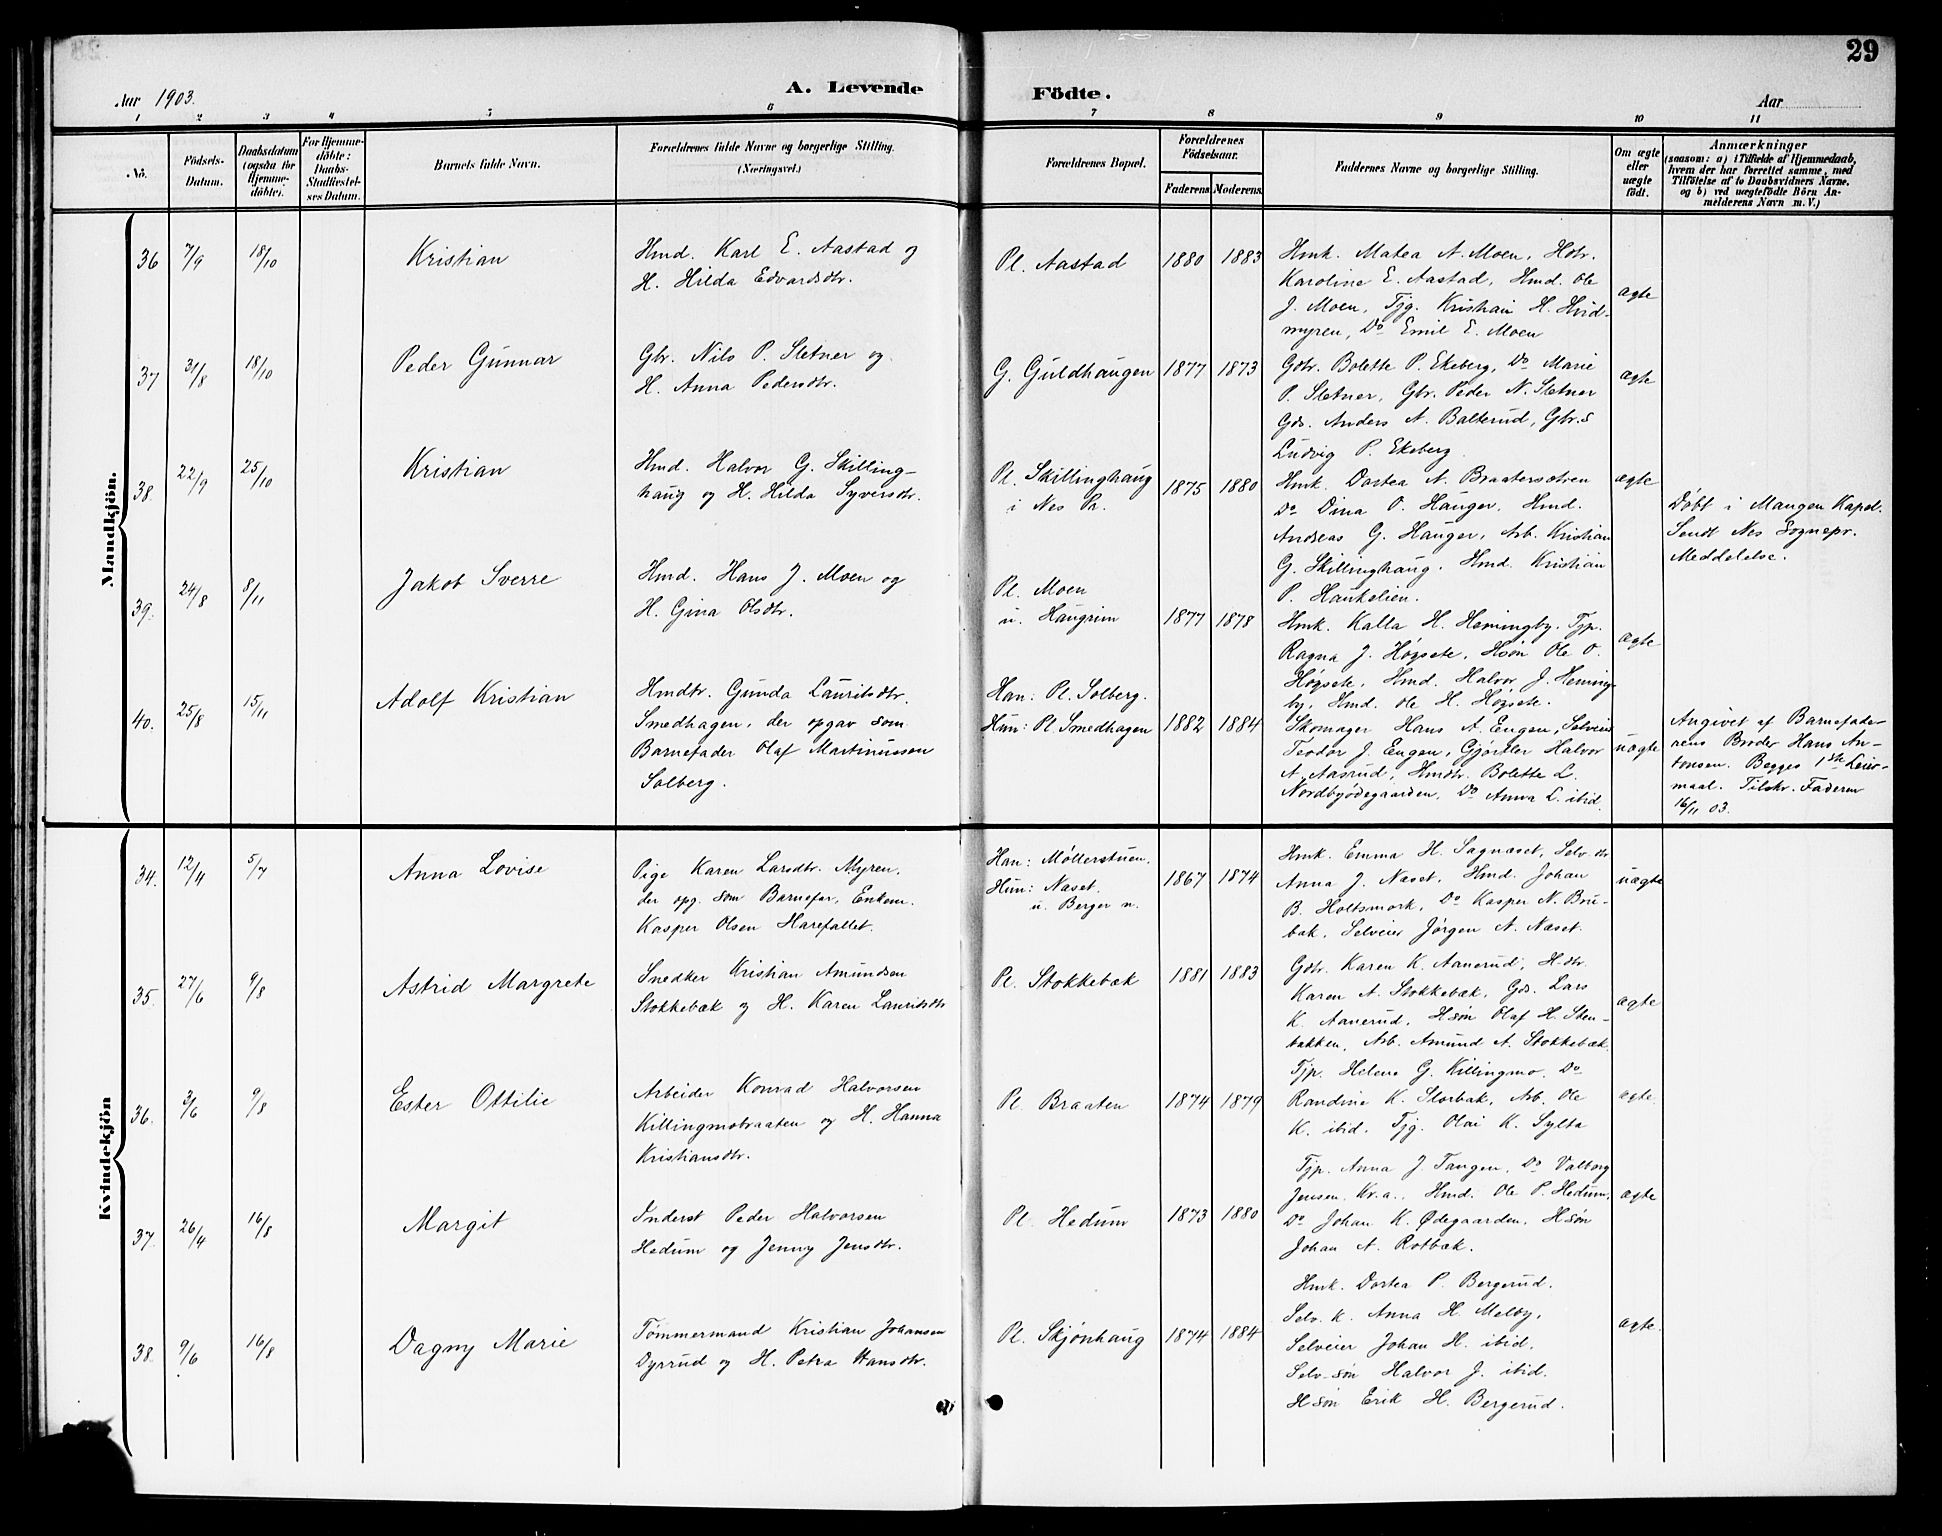 29
Aar 1903.
A. Levende
Födte.
Aar
1 2 3 4 5 6 7 8 9 10 11
No.
Födsels-
Datum.
Daabsdatum
(ogsaa for
Hjemme-
döbte).
For Hjemme-
döbte:
Daabs-
Stadfæstel-
ses Datum.
Barnets fulde Navn.
Forældrenes fulde Navne og borgerlige Stilling.
(Næringsvei.)
Forældrenes Bopæl.
Forældrenes
Födselsaar.
Faderens.
Moderens.
Faddernes Navne og borgerlige Stilling.
Om ægte
eller
uægte
födt.
Anmærkninger
(saasom: a) i Tilfælde af Hjemmedaab,
hvem der har forrettet samme, med
Tilföielse af to Daabsvidners Navne,
og b) ved uægtefödte Börn An-
melderens Navn m. V.)
Mandkjön.
36 7/9 18/10
Kristian
Hmd. Karl E. Aastad og
H. Hilda Edvardsdtr.
Pl. Aastad
1880 1883
Hmk. Matea A. Moen, Hdtr.
Karoline E. Aastad, Hmd. Ole
J. Moen, Tjg. Kristian H. Hvid-
myren, Do Emil E. Moen
ægte
37 31/8 18/10
Peder Gunnar
Gbr. Nils P. Sletner og
H. Anna Pedersdtr.
G. Guldhaugen
1877 1873
Gdtr. Bolette P. Ekeberg, Do Marie
P. Sletner, Gbr. Peder N. Sletner
Gds. Anders A. Balterud, Gbr.s
Ludvig P. Ekeberg.
ægte
38. 22/9 25/10
Kristian
Hmd. Halvor G. Skilling-
haug og H. Hilda Syversdtr.
Pl. Skillinghaug
i Nes Pr.
1875 1880
Hmk. Dortea N. Braatersætren
Do Dina O. Hauger, Hmd.
Andreas G. Hauger, Arb. Kristian
G. Skillinghaug. Hmd. Kristian
P. Haukelien.
ægte
Døbt i Mangen Kapel.
Sendt Nes Sognepr.
Meddelelse.
39. 24/8 8/11
Jakob Sverre
Hmd. Hans J. Moen og
H. Gina Olsdtr.
Pl. Moen
u. Haugrim
1877 1878
Hmk. Kalla H. Hemingby. Tjp.
Ragna J. Høgsete, Hsøn Ole O.
Høgsete, Hmd. Halvor J. Heming-
by, Hmd. Ole H. Høgsete.
ægte
40. 25/8 15/11
Adolf Kristian
Hmdtr. Gunda Lauritsdtr.
Smedhagen, der opgav som
Barnefader Olaf Martinussen
Solberg.
Han: Pl. Solberg.
Hun: Pl. Smedhagen
1882 1884
Skomager Hans A. Engen, Selveier
Teodor J. Engen, Gjørtler Halvor
A. Aasrud, Hmdtr. Bolette L.
Nordbyødegaarden, Do Anna L. ibid.
uægte
Angivet af Barnefade-
rens Broder Hans An-
tonsen. Begges 1ste Leier-
maal. Tilskr. Faderen
16/11 03.
Kvindekjön
34. 12/4 5/7
Anna Lovise
Pige Karen Larsdtr. Myren,
der opg. som Barnefar, Enkem.
Kasper Olsen Harefallet.
Han: Møllerstuen.
Hun: Næset.
u. Berger n.
1867 1874
Hmk. Emma H. Sagnæset, Selv.dtr
Anna J. Næset. Hmd. Johan
B. Holtsmork, Do Kasper N. Bru-
bak, Selveier Jørgen A. Næset.
uægte
35. 27/6 9/8
Astrid Margrete
Snedker Kristian Amundsen
Stokkebæk og H. Karen Lauritsdtr
Pl. Stokkebæk
1881 1883
Gdtr. Karen K. Aanerud, H.dtr.
Karen A. Stokkebæk, Gds. Lars
K. Aanerud, Hsøn Olaf H. Sten-
bakken, Arb. Amund A. Stokkebæk.
ægte
36. 3/6 9/8
Ester Ottilie
Arbeider Konrad Halvorsen
Killingmobraaten og H. Hanna
Kristiansdtr.
Pl. Braaten
1874 1879
Tjp. Helene G. Killingmo, Do
Randine K. Storbak, Arb. Ole
K. ibid. Tjg. Olai K. Sylta
ægte.
37. 26/4 16/8
Margit
Inderst Peder Halvorsen
Hedum og Jenny Jensdtr.
Pl. Hedum
1873 1880
Tjp. Anna J. Tangen, Do Valborg
Jensen, Kr.a., Hmd. Ole P. Hedum,
Do Johan K. Ødegaarden, Hsøn
Johan A. Rotbæk.
ægte
38. 9/6 16/8
Dagny Marie
Tømmermand Kristian Johansen
Dyrrud og H. Petra Hansdtr.
Pl. Skjønhaug
1874 1884
Hmk. Dortea P. Bergerud.
Selv.k. Anna H. Melby,
Selveier Johan H. ibid.
Selv.søn Halvor J. ibid.
Hsøn Erik H. Bergerud.
ægte.